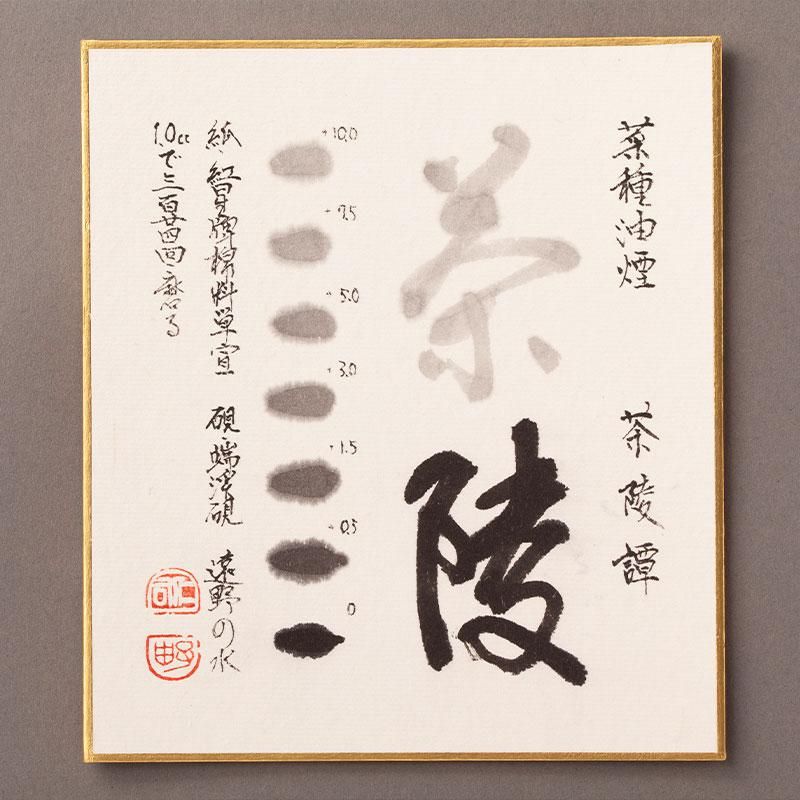 菜種油煙 茶陵譚
茶陵
+10.0
+7.5
+5.0
+3.0
+1.5
+0.5
0
紙、紅星牌棉料単宣 硯、端渓硯 遠野の水
1.0ccで三百廿四回、磨墨する